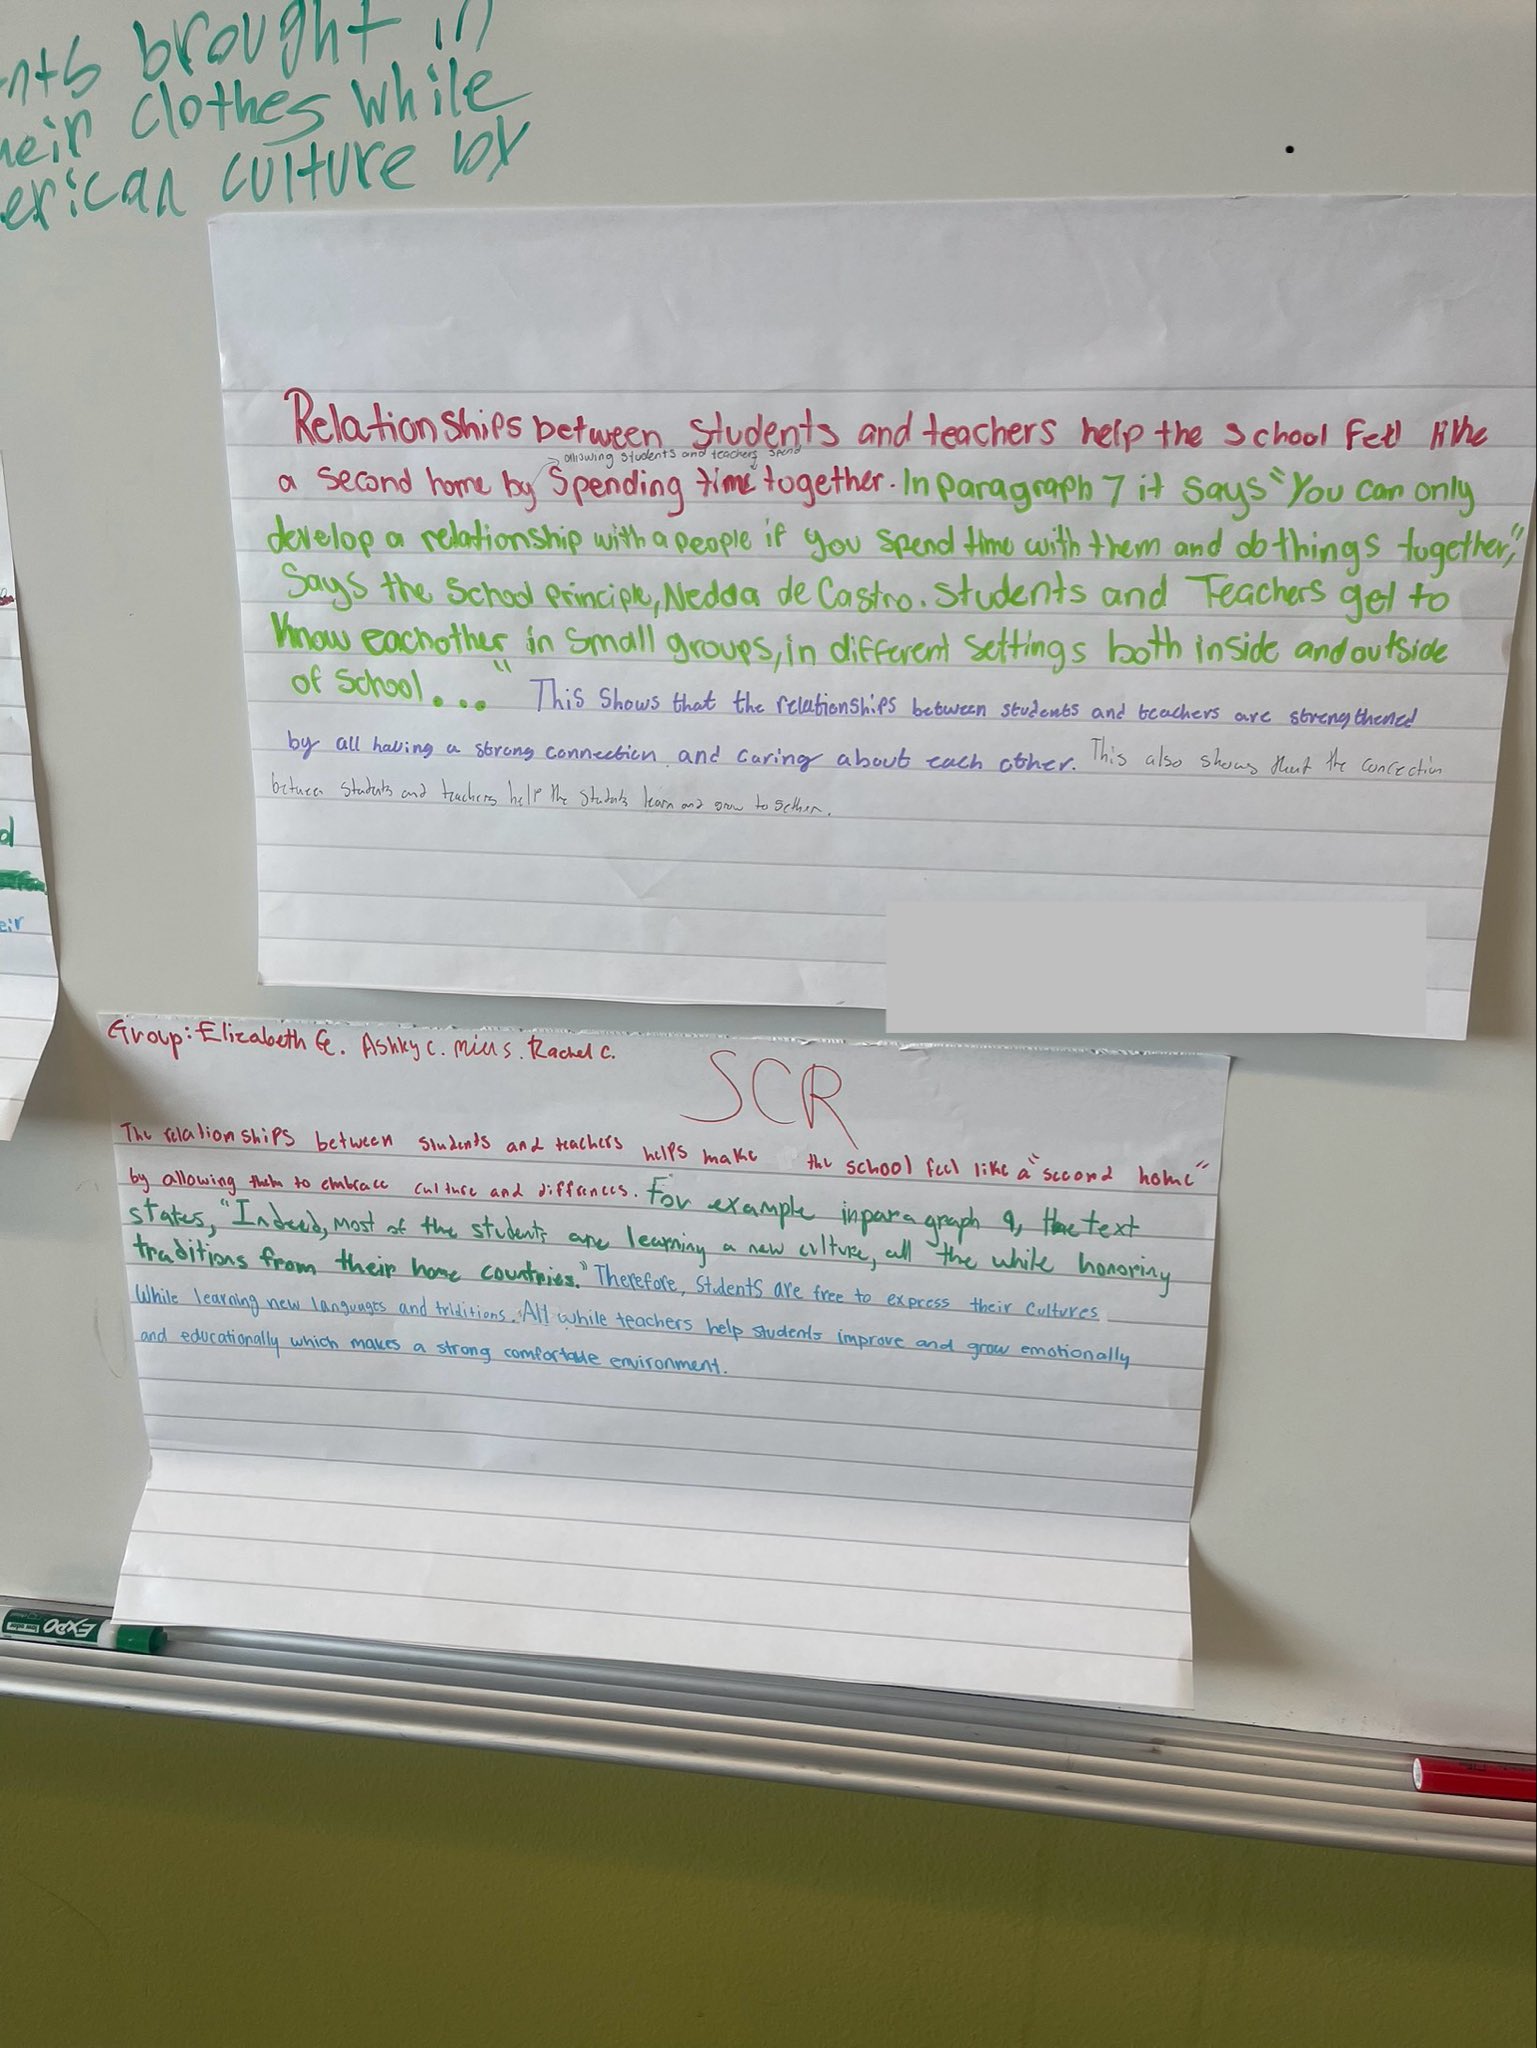 brought in
clothes while
culture by
Relationships between students and teachers help the school feel like
allowing students and teachers spend
a second home by spending time together. In paragraph 7 it says "You can only
develop a relationship with a people if you spend time with them and do things together,"
says the school principle, Nedda de Castro. Students and Teachers get to
know eachother in small groups, in different settings both inside and outside
of school...." This shows that the relationships between students and teachers are strengthened
by all having a strong connection and caring about each other. This also shows that the
between students and teachers help the students learn and grow together.
Group: Elizabeth G. C. S. Rachel C.
SCR
The relationships between students and teachers helps make the school feel like a "second home"
by allowing them to embrace culture and diffrences. For example in paragraph 9, the text
states, "Indeed, most of the students are learning a new culture, all the while honoring
traditions from their home countries." Therefore, students are free to express their cultures
while learning new languages and triditions. All while teachers help students improve and grow emotionally
and educationally which makes a strong comfortable environment.
EXPO